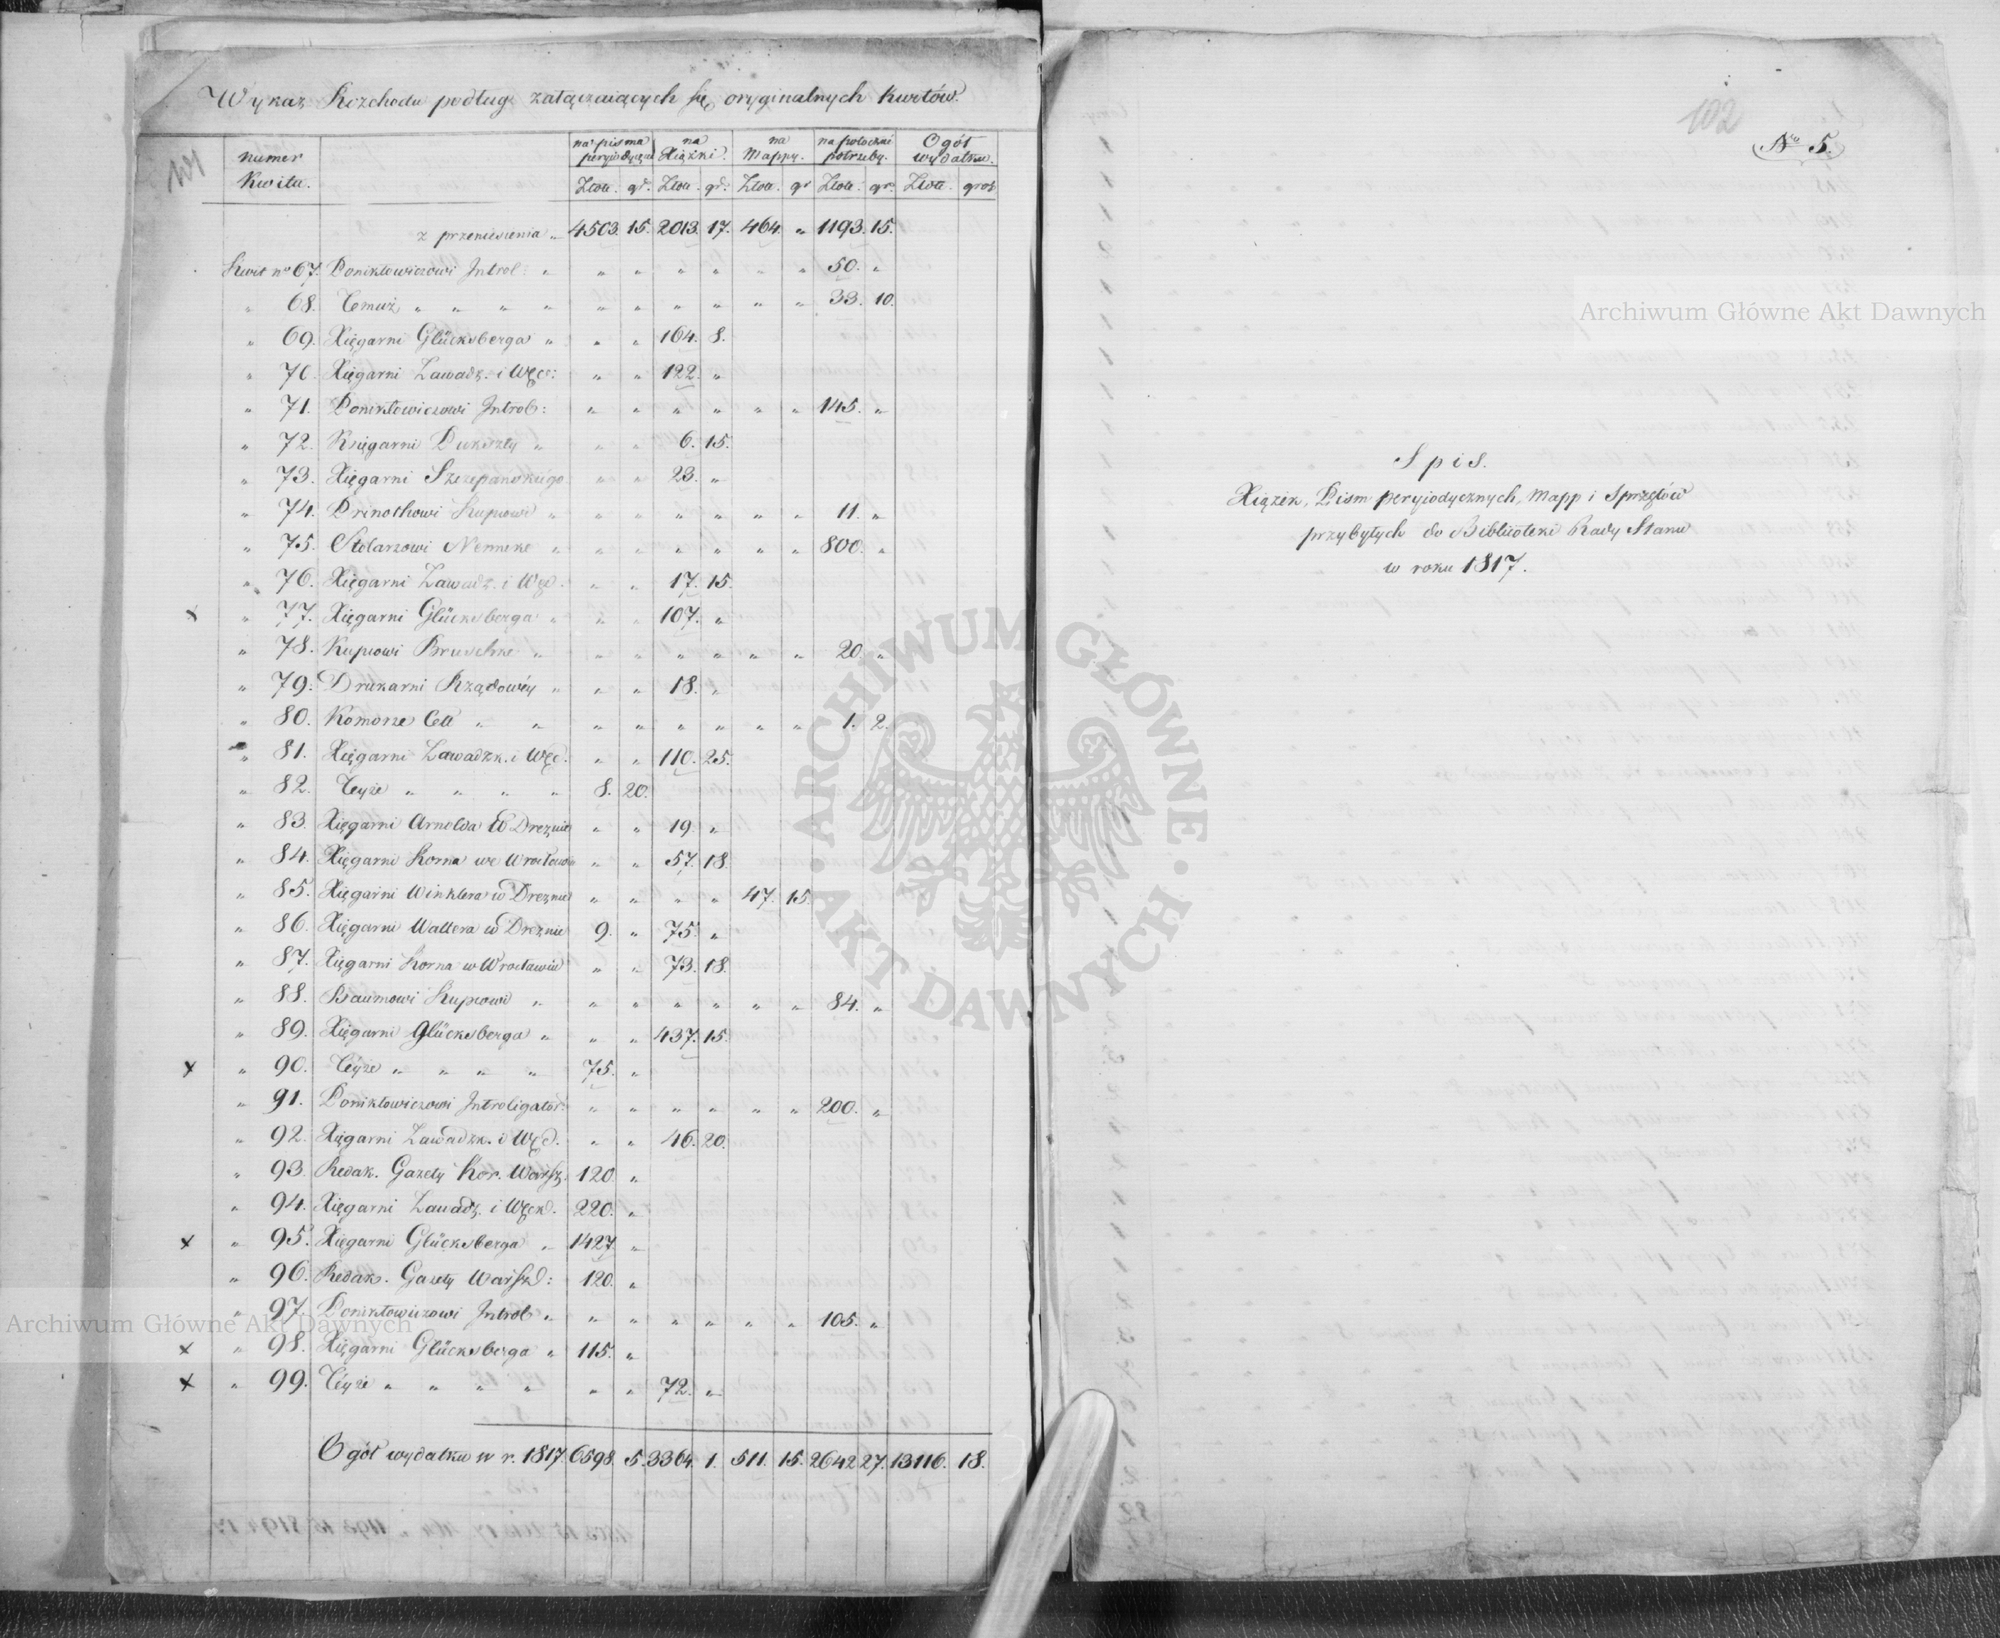 Wykaz Rozchodu podług załączaiących się oryginalnych kwitów.
101
numer kwitu. na pisma peryiodyczne na Xiążki. na Mappy. na potoczne potrzeby. Ogół wydatku.
Złote. gr. Złote. gr. Złote. gr Złote. gr. Złote. grosz
z przeniesienia „ 4503. 15. 2013. 17. 464. „ 1193. 15.
Kwit no 67. Poniktowiczowi Introl: „ „ „ „ „ „ „ 50. „
„ 68. Temuż „ „ „ „ „ „ „ „ „ „ 33. 10.
„ 69. Xięgarni Glücksberga „ „ „ 164. 8.
„ 70. Xięgarni Zawadz. i Węc: „ „ 122. „
„ 71. Poniktowiczowi Introl: „ „ „ „ „ „ 145. „
„ 72. Księgarni Dukszty „ „ „ 6. 15.
„ 73. Xięgarni Szczepańskiego „ „ 23. „
„ 74. Drinothowi Kupcowi „ „ „ „ „ „ „ 11. „
„ 75. Stolarzowi Nemneke „ „ „ „ „ „ „ 800. „
„ 76. Xięgarni Zawadz. i Węc. „ „ 17. 15.
x „ 77. Xięgarni Glücksberga „ „ „ 107. „
„ 78. Kupcowi Bruschke „ „ „ „ „ „ „ 20. „
„ 79. Drukarni Rządowéy „ „ „ 18. „
„ 80. Komorze Ceł „ „ „ „ „ „ „ „ 1. 2.
„ 81. Xięgarni Zawadzk. i Węc. „ „ 110. 25.
„ 82. Teyże „ „ „ „ 8. 20.
„ 83. Xięgarni Arnolda w Dreznie „ „ 19. „
„ 84. Xięgarni Korna we Wrocławiu „ „ 57. 18.
„ 85. Xięgarni Winklera w Dreznie „ „ „ „ 47. 15.
„ 86. Xięgarni Waltera w Dreznie 9. „ 75. „
„ 87. Xięgarni Korna w Wrocławiu „ „ 73. 18.
„ 88. Baumowi Kupcowi „ „ „ „ „ „ „ 84. „
„ 89. Xięgarni Glücksberga „ „ „ 437. 15.
x „ 90. Teyże „ „ „ „ 75. „
„ 91. Poniktowiczowi Introligator: „ „ „ „ „ „ 200. „
„ 92. Xięgarni Zawadzk. i Węc. „ „ 46. 20.
„ 93. Redak. Gazety Kor. Warsz. 120. „
„ 94. Xięgarni Zawadz. i Węck. 220. „
x „ 95. Xięgarni Glücksberga „ 1427. „
„ 96. Redak. Gazety Warsz: 120. „
„ 97. Poniktowiczowi Introl „ „ „ „ „ „ „ 105. „
x „ 98. Xięgarni Glücksberga „ 115. „
x „ 99. Teyże „ „ „ „ „ „ 72. „
Ogół wydatku w r. 1817. 6598. 5. 3364. 1. 511. 15. 2642 27. 13116. 18.
102
Nro 5.
Spis.
Xiążek, Pism peryiodycznych, Mapp i Sprzętów
przybyłych do Biblioteki Rady Stanu
w roku 1817.
Archiwum Główne Akt Dawnych
Archiwum Główne Akt Dawnych
ARCHIWUM GŁÓWNE · AKT DAWNYCH ·